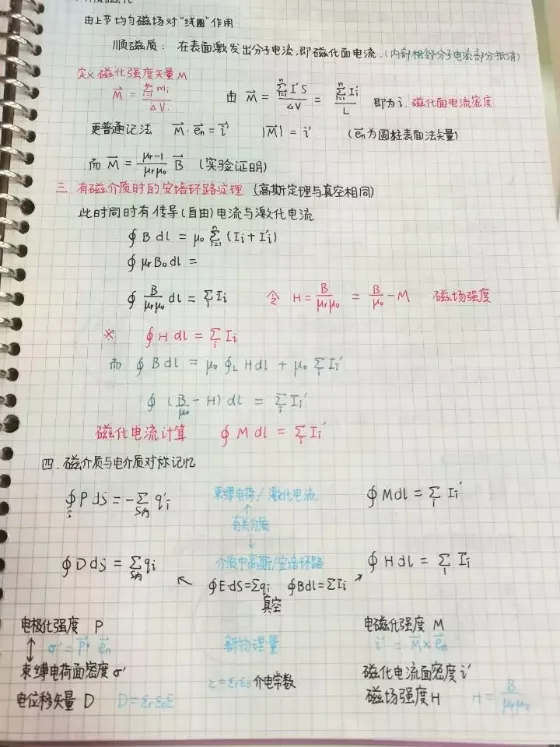 由上节均匀磁场对"线圈"作用
顺磁质: 在表面激发出分子电流,即磁化面电流.(内部相邻分子电流部分抵消)
定义磁化强度矢量M
M⃗ = Σmᵢ / ΔV 由 M⃗ = ΣI'S / ΔV = ΣIᵢ' / L 即为i, 磁化面电流密度
更普通记法 M⃗·e⃗n = i⃗' |M⃗| = i' (e⃗n为圆柱表面法矢量)
而 M⃗ = (μr-1)/(μrμ₀) B⃗ (实验证明)
三. 有磁介质时的安培环路定理 (高斯定理与真空相同)
此时同时有传导(自由)电流与激化电流
∮ B dl = μ₀ Σ (Ii + Ii')
∮ μr B₀ dl =
∮ B/(μrμ₀) dl = Σ Ii 令 H = B/(μrμ₀) = B/μ₀ - M 磁场强度
※ ∮ H dl = Σ Ii
而 ∮ B dl = μ₀ ∮L H dl + μ₀ Σ Ii'
∮ (B/μ₀ - H) dl = Σ Ii'
磁化电流计算 ∮ M dl = Σ Ii'
四. 磁介质与电介质对称记忆
∮ P ds = -Σ q'i 束缚电荷/激化电流 ∮ M dl = Σ Ii'
↑
有关介质
↓
∮ D ds = Σ qi 介质中高斯/安培环路 ∮ H dl = Σ Ii
↖ ∮E·dS=Σqi ∮Bdl=ΣIi ↗
真空
电极化强度 P 电磁化强度 M
↕ σ' = P⃗·e⃗n 新物理量 i' = M⃗×e⃗n
束缚电荷面密度σ' 磁化电流面密度 i'
ε=εrε₀ 介电常数
电位移矢量 D D=εrε₀E 磁场强度H H = B/(μrμ₀)